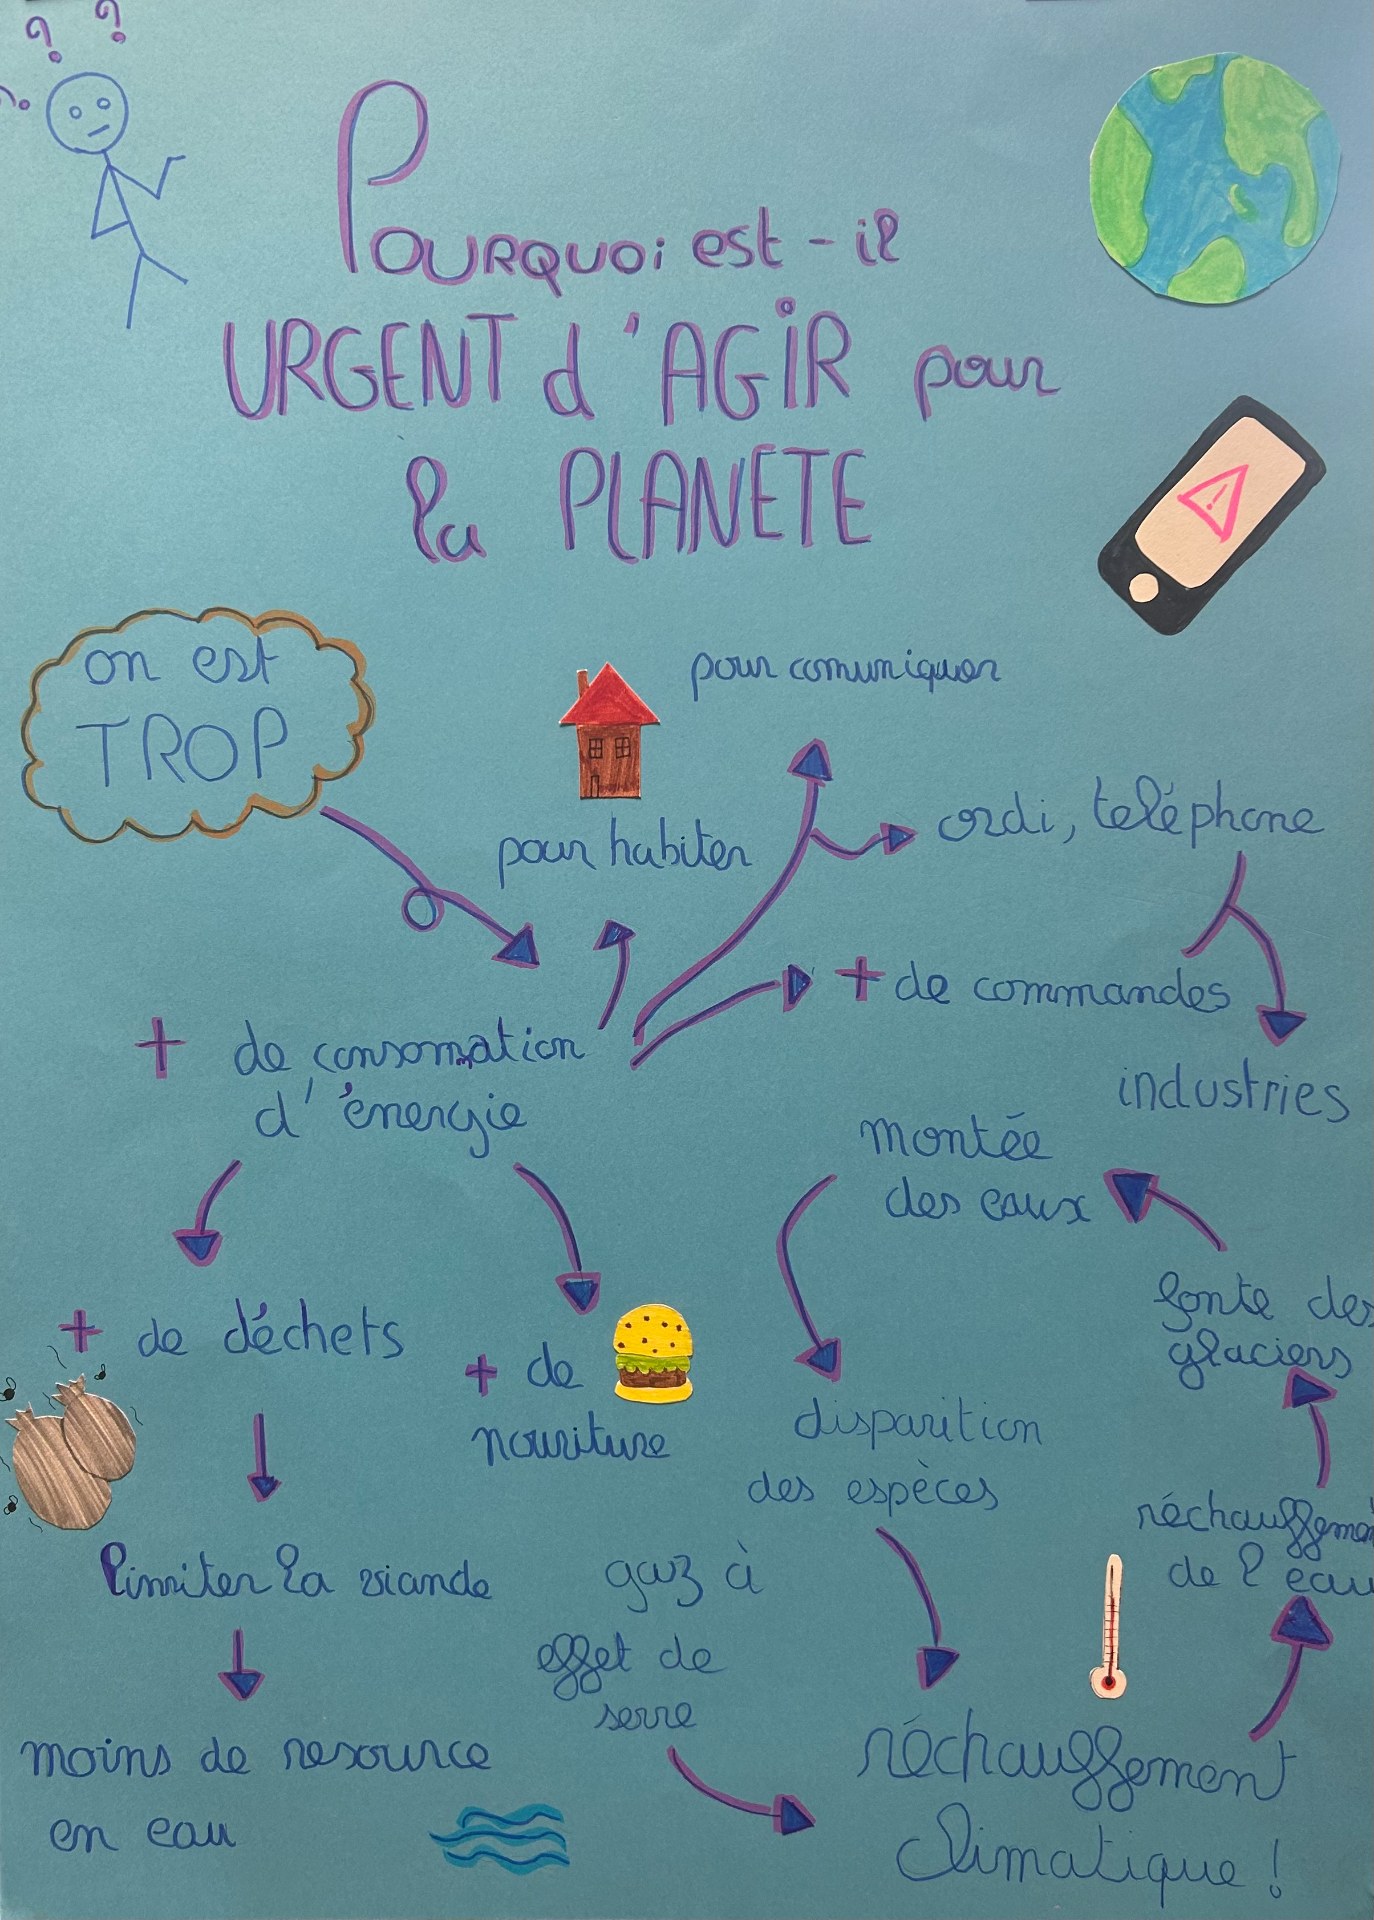 ? ?
?
Pourquoi est-il
URGENT d'AGIR pour
la PLANETE
on est
TROP
pour comuniquer
pour habiter
ordi, teléphone
+ de commandes
industries
+ de consomation
d'énergie
montée
des eaux
fonte des
glaciers
+ de déchets
+ de
nouriture
disparition
des espèces
réchauffement
de l'eau
limiter la viande
gaz à
effet de
serre
moins de resource
en eau
réchauffement
climatique !